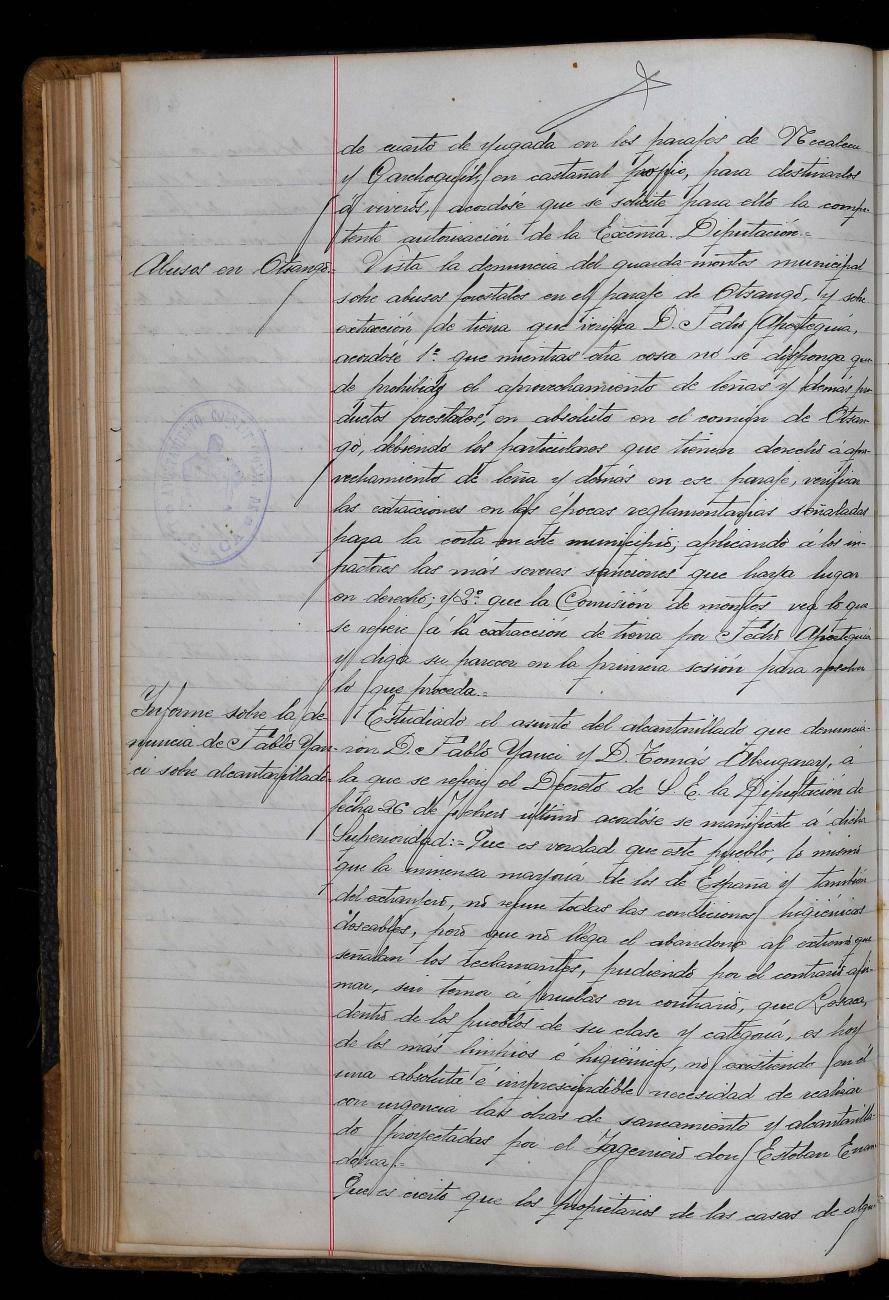 de cuarto de yugada en los parajes de Necalecu
y Garchoguil, en castañal propio, para destinarlos
á viveros, acordóse que se solicite para ello la compe-
tente autorización de la Excma. Diputación.=
Abusos en Otsango.-
Vista la denuncia del guarda-montes municipal
sobre abusos forestales en el paraje de Otsango, y sobre
extracción de tierra que verifica D. Pedro Apesteguía,
acordóse 1º que mientras otra cosa no se disponga que-
de prohibido el aprovechamiento de leñas y demás pro-
ductos forestales, en absoluto en el común de Otsan-
go, debiendo los particulares que tienen derecho á apro-
vechamiento de leña y demás en ese paraje, verificar
las extracciones en las épocas reglamentarias señaladas
para la corta en este municipio, aplicando a los in-
fractores las mas severas sanciones que haya lugar
en derecho; y 2º que la Comisión de montes vea lo que
se refiere á la extracción de tierra por Pedro Apesteguia
y diga su parecer en la primera sesión para resolver
lo que proceda.=
Informe sobre la de-
nuncia de Pablo Yan-
ci sobre alcantarillado-
Estudiado el asunto del alcantarillado que denuncia-
ron D. Pablo Yanci y D. Tomás Abeugaray, á
la que se refiere el Decreto de S. E. la Diputación de
fecha 26 de Febrero último acordóse se manifieste á dicha
Superioridad:= Que es verdad que este pueblo, lo mismo
que la inmensa mayoria de los de España y también
del extranjero, no reune todas las condiciones higiénicas
deseables, pero que no llega el abandono al extremo que
señalan los reclamantes, pudiendo por el contrario afir-
mar, sin temor á pruebas en contrario, que Lesaca,
dentro de los pueblos de su clase y categoria, es hoy
de los más limpios é higiénicos, no existiendo en él
una absoluta é imprescindible necesidad de realizar
con urgencia las obras de saneamiento y alcantarilla-
do proyectadas por el Ingeniero don Esteban Eram-
dorea.=
Que es cierto que los propietarios de las casas de algu-
AYUNTAMIENTO